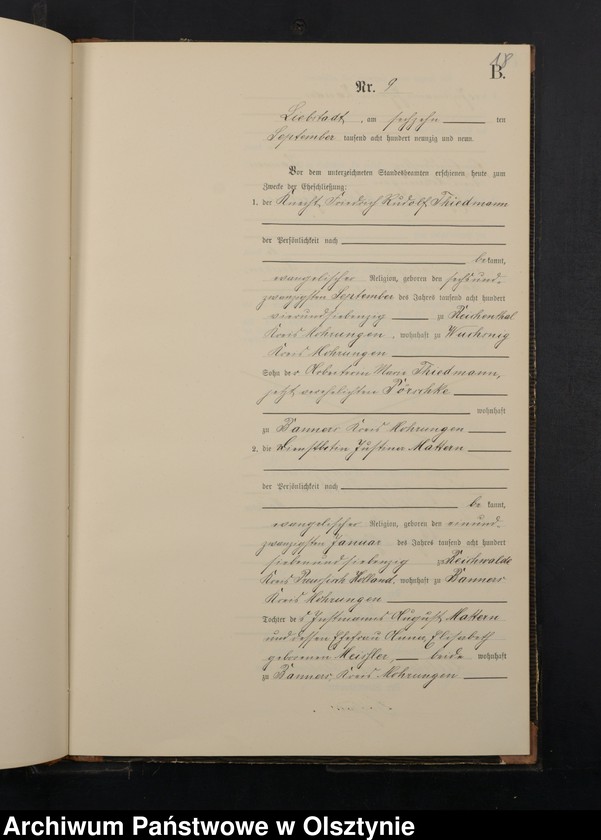 18
B.
Nr. 9
Liebstadt, am sechzehn ten
September tausend acht hundert neunzig und neun.
Vor dem unterzeichneten Standesbeamten erschienen heute zum
Zwecke der Eheschließung:
1. der Knecht Friedrich Rudolf Thiedmann
der Persönlichkeit nach
bekannt,
evangelischer Religion, geboren den sechsund-
zwanzigsten September des Jahres tausend acht hundert
vierundsiebenzig zu Reichenthal
Kreis Mohrungen, wohnhaft zu Wuchsnig
Kreis Mohrungen
Sohn der Arbeiterin Marie Thiedmann,
jetzt verehelichten Pörschke
wohnhaft
zu Banners, Kreis Mohrungen
2. die Dienstboten Justine Mattern
der Persönlichkeit nach
be kannt,
evangelischer Religion, geboren den einund-
zwanzigsten Januar des Jahres tausend acht hundert
siebenundsiebenzig zu Reichwalde
Kreis Preussisch Holland, wohnhaft zu Banners
Kreis Mohrungen
Tochter des Instmannes August Mattern
und dessen Ehefrau Anna Elisabeth
geborenen beide wohnhaft
zu Banners, Kreis Mohrungen
Archiwum Państwowe w Olsztynie